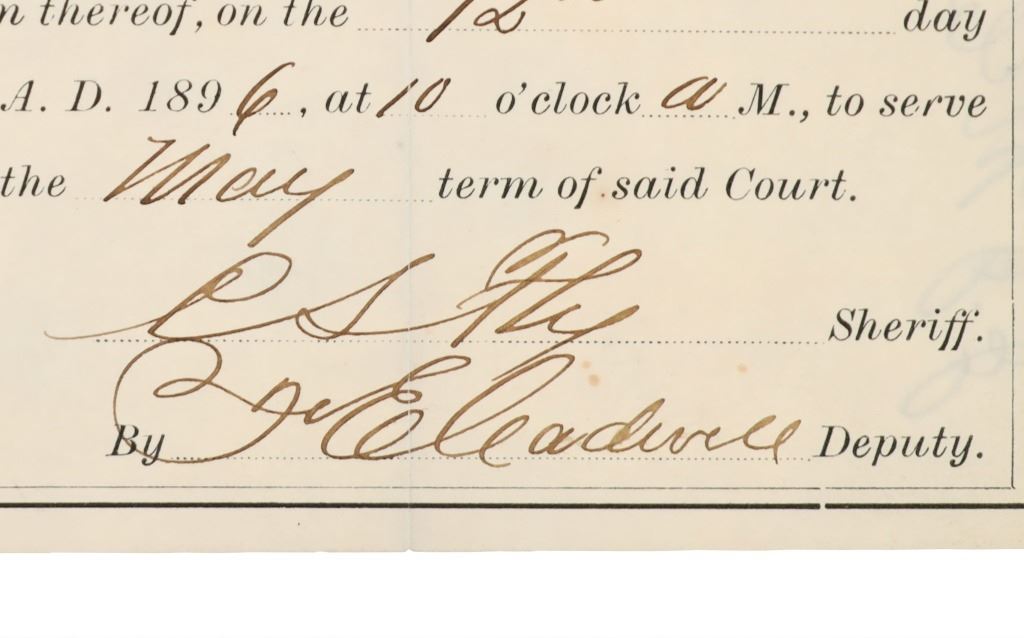 n thereof, on the 12th day
A. D. 1896, at 10 o'clock a M., to serve
the May term of said Court.
C S Fly Sheriff.
By Cadwell Deputy.